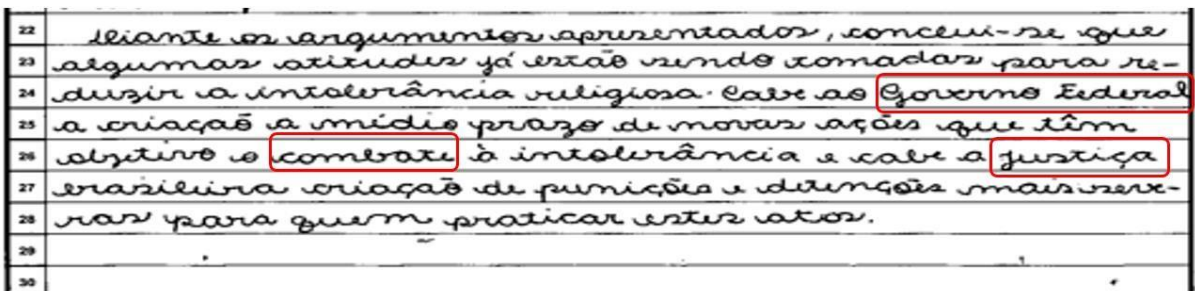 22 Diante os argumentos apresentados, conclui-se que
23 algumas atitudes já estão sendo tomadas para re-
24 duzir a intolerância religiosa. Cabe ao Governo Federal
25 a criação a médio prazo de novas ações que têm
26 objetivo o combate à intolerância e cabe a justiça
27 brasileira criação de punições e detenções mais seve-
28 ras para quem praticar estes atos.
29
30